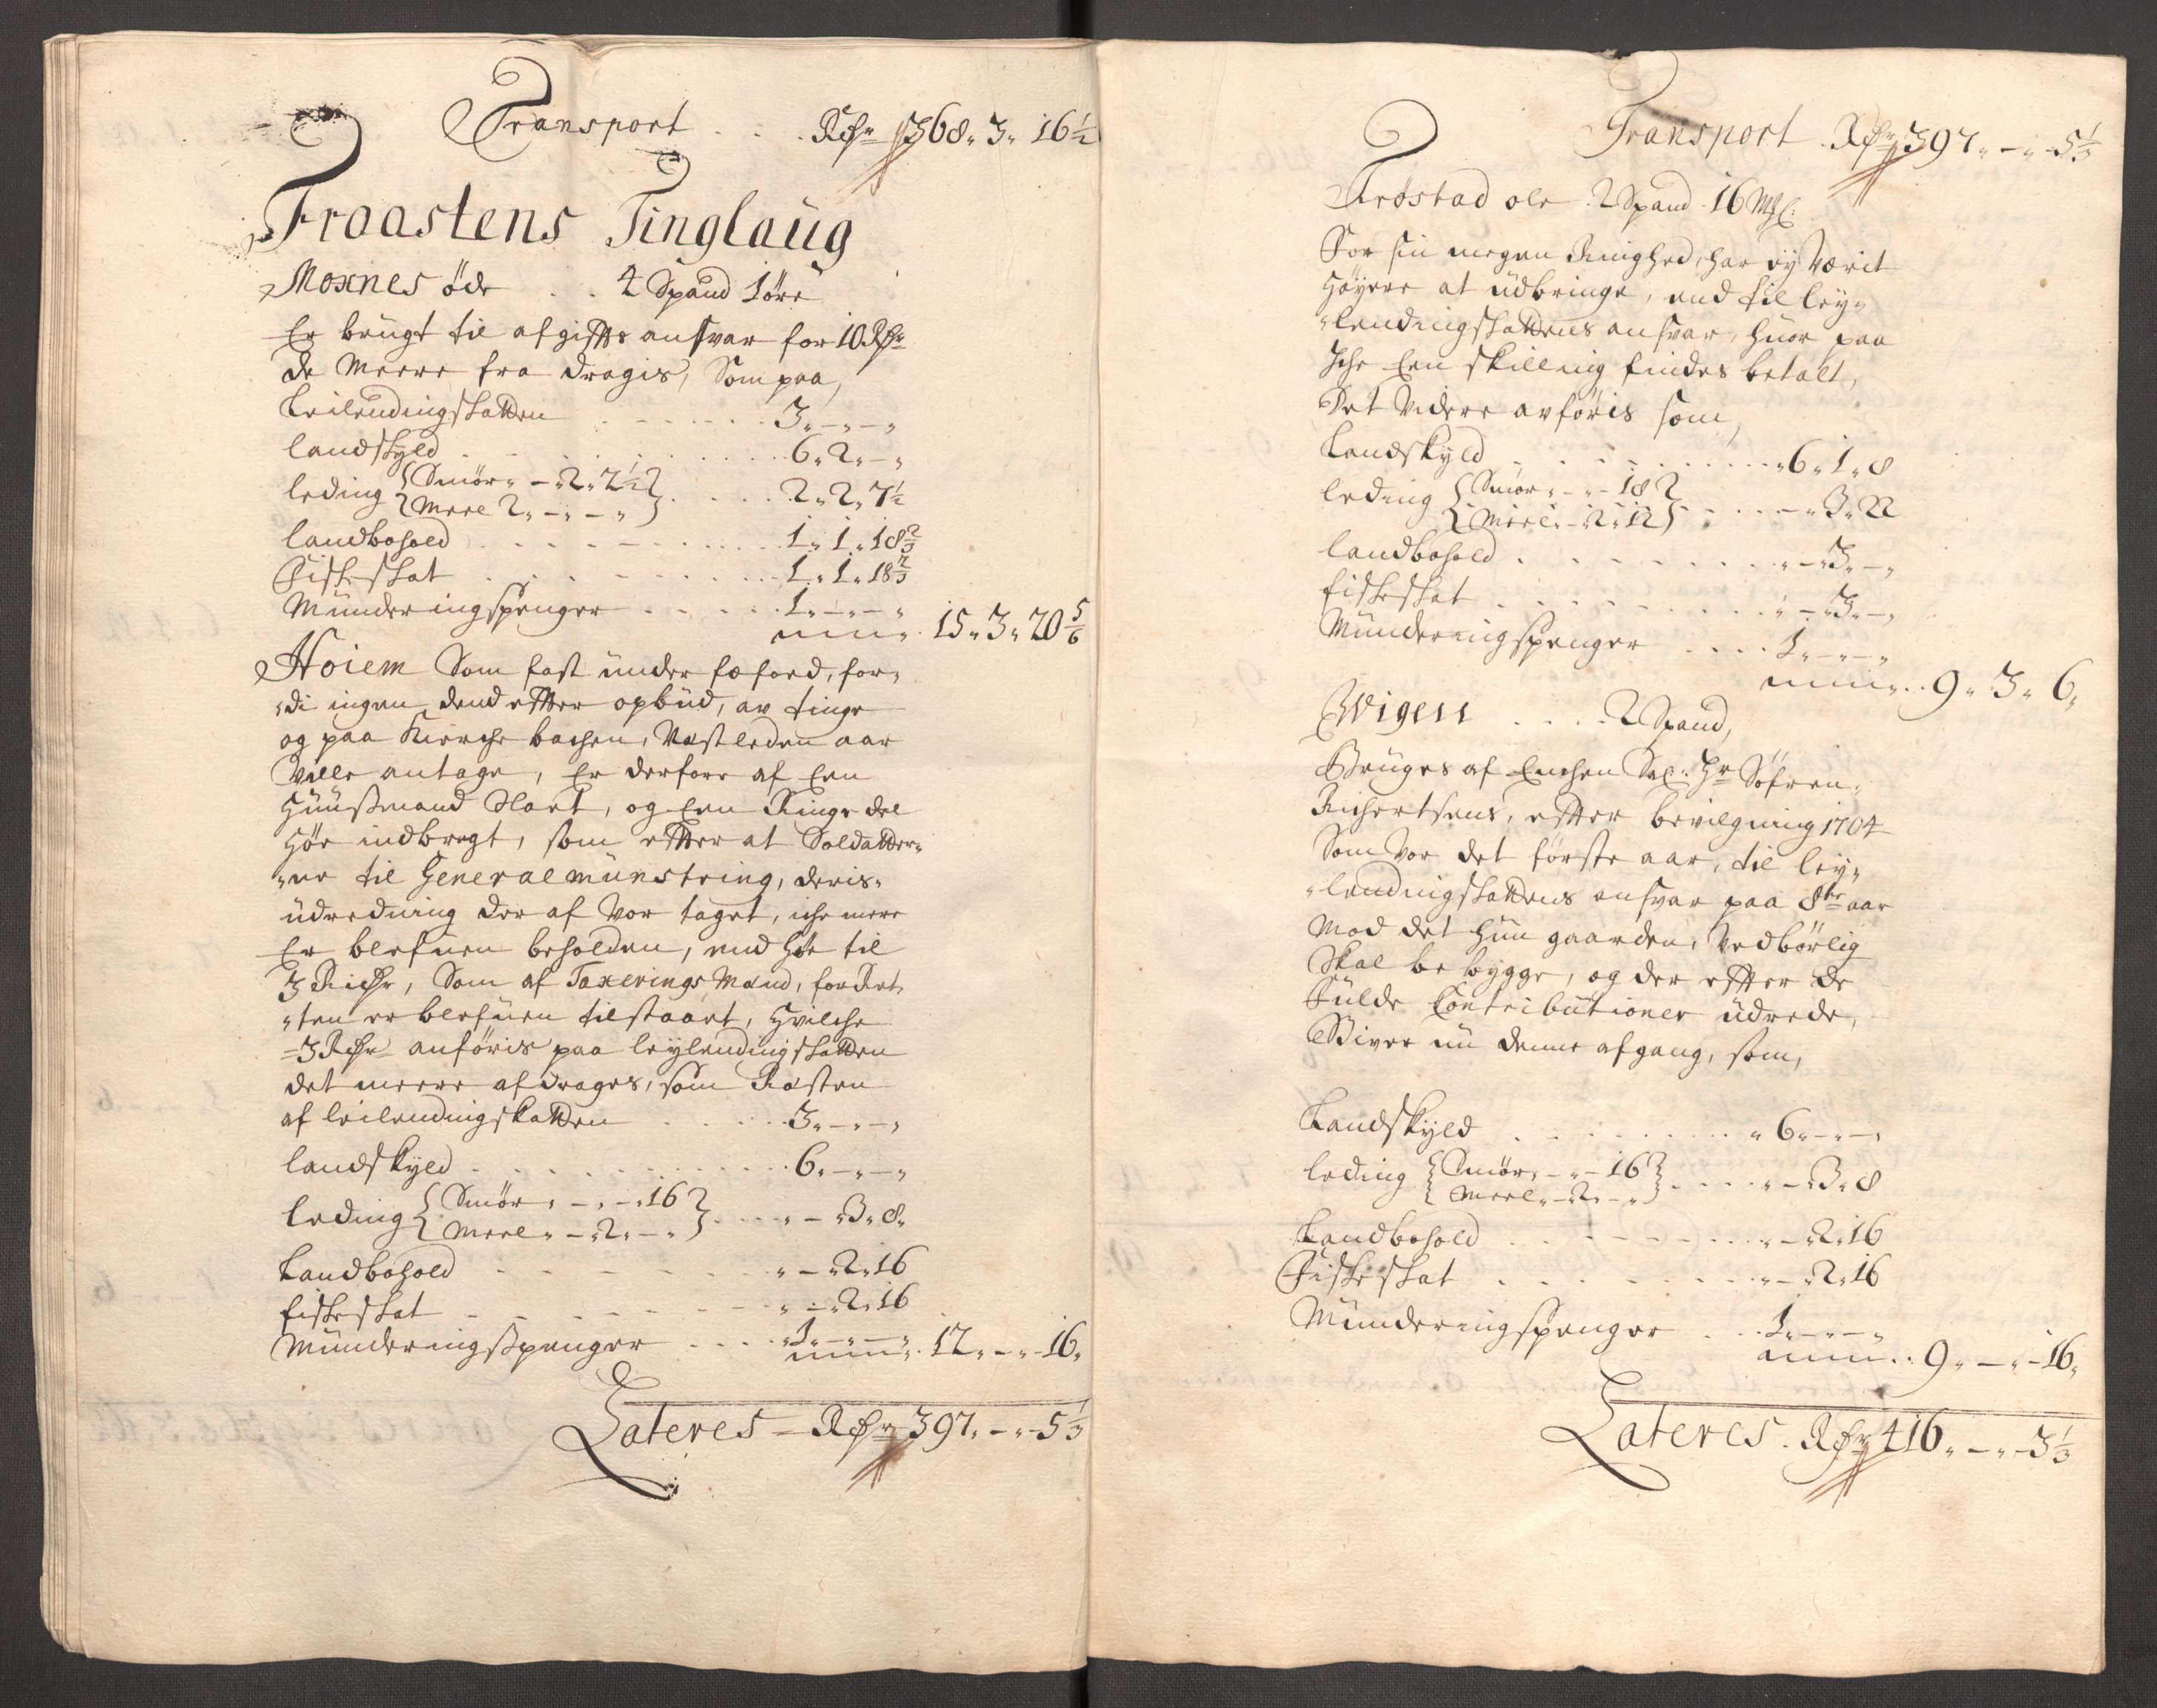 Transport . . . Rdr 368„ 3„ 16½
Fraastens Tinglaug
Moxnes öde . . 4 Spand 1 öre
Er brugt til afgiffts ansvar for 10 Rdr
de meere fra dragis, Som paa,
Leilendingskatten . . . . . . 3„ – „ – „
landskyld . . . . . . 6„ 2„ – „
leding { Smör„ – „ 2„ 2½ }
{ Meel 2„ – „ – „ } . . . . 2„ 2„ 7½
landbohold . . . . . . 1„ 1„ 18⅔
Fiskeskat . . . . . . 1„ 1„ 18⅔
Munderingspenger . . . . . 1„ – „ – „
15„ 3„ 20 5/6
Hoiem Som fast under föefoed, for„
„di ingen dend effter opbud, av tinge
og paa Kierche bachen, Nestleden aar
Ville antage, Er derfore af Een
Huusmand Slaet, og Een Ringe del
Höe indbragt, som effter at Soldatter„
„ne til Generalmünstring, deris„
udredning der af Vor taget, iche mere
Er blefuen beholden, end Höe til
3 Richr, Som af Taxerings Mænd, for Ret„
„ten er blefuen tilstaaet, Hvilche
3 Rdr anföris paa leylendingskatten
det meere af drages, som Resten
af leilendingskatten . . . . . 3„ – „ – „
landskyld . . . . . . 6„ – „ – „
leding { Smör„ – „ – „ 16 }
{ Meel„ – „ 2„ – „ } . . . „ – „ 3„ 8„
Landbohold . . . . . „ – „ 2„ 16
fiskeskat . . . . . „ – „ 2„ 16
Munderingspenger . . . „ 1„ – „ – „
12„ – „ 16„
Lateres – Rdr 397„ – „ 5⅓
Transport . Rdr 397„ – „ 5⅓
Tröstad ole . 2 Spand 16 Ml:
For sin megen Ringhed, har ey Værit
Höyere at udbringe, end til ley„
„lendingskattens ansvar, huor paa
Iche Een skilling findes betalt,
Det Videre avföris som,
Landskyld . . . . . . . „ 6„ 1„ 8
leding { Smör„ – „ – 18 }
{ Meel„ – „ 2„ 12 } . . . . – „ 3„ 22
landbohold . . . . . . „ – „ 3„ – „
fiskeskat . . . . . . „ – „ 3„ – „
Munderingspenger . . . . 1„ – „ – „
9„ 3„ 6„
Wigen . . . . 2 Spand,
Bruges af Enchen Sal: Hr Söfren
Richertsens, effter bevilgning 1704
Som Vor det förste aar, til ley„
„lendingskattens ansvar paa 8te aar
Mod det hun gaarden, Vedbörlig
Skal be bygge, og der effter de
Fulde Contributioner udrede,
Bliver nu denne afgang, som,
Landskyld . . . . . . „ 6„ – „ – „
leding { Smör„ – „ – 16 }
{ Meel„ – „ 2„ – „ } . . . . „ – „ 3„ 8
Landbohold . . . . . . „ – „ 2„ 16
Fiskeskat . . . . . . „ – „ 2„ 16
Munderingspenger . . . 1„ – „ – „
9„ – „ – 16„
Lateres . Rdr 416„ – „ – 3⅓